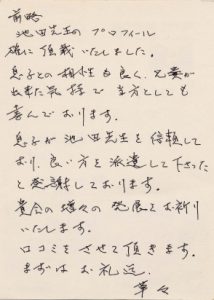 前略
池田先生の プロフィール
確に 頂戴いたしました。
息子との 相性も 良く、兄妻が
出来た気持で 当方としても
喜んで おります。
息子が 池田先生を 信頼して
おり、良い方を 派遣して下さった
と 感謝しております。
貴会の 益々の 発展を お祈り
いたします。
口コミを させて 頂きます。
まずは お礼迄。
草々